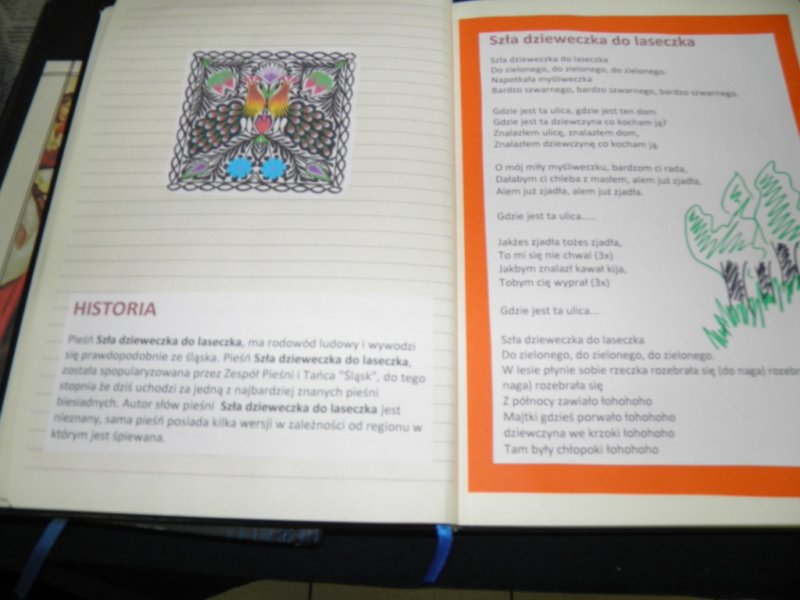 HISTORIA
Pieśń Szła dzieweczka do laseczka, ma rodowód ludowy i wywodzi
się prawdopodobnie ze śląska. Pieśń Szła dzieweczka do laseczka,
została spopularyzowana przez Zespół Pieśni i Tańca "Śląsk", do tego
stopnia że dziś uchodzi za jedną z najbardziej znanych pieśni
biesiadnych. Autor słów pieśni Szła dzieweczka do laseczka jest
nieznany, sama pieśń posiada kilka wersji w zależności od regionu w
którym jest śpiewana.
Szła dzieweczka do laseczka
Szła dzieweczka do laseczka
Do zielonego, do zielonego, do zielonego.
Napotkała myśliweczka
Bardzo szwarnego, bardzo szwarnego, bardzo szwarnego.
Gdzie jest ta ulica, gdzie jest ten dom
Gdzie jest ta dziewczyna co kocham ją?
Znalazłem ulicę, znalazłem dom,
Znalazłem dziewczynę co kocham ją.
O mój miły myśliweczku, bardzom ci rada,
Dałabym ci chleba z masłem, alem już zjadła,
Alem już zjadła, alem już zjadła.
Gdzie jest ta ulica.....
Jakżes zjadła tożes zjadła,
To mi się nie chwal (3x)
Jakbym znalazł kawał kija,
Tobym cię wyprał (3x)
Gdzie jest ta ulica...
Szła dzieweczka do laseczka
Do zielonego, do zielonego, do zielonego.
W lesie płynie sobie rzeczka rozebrała się (do naga) rozebr
naga) rozebrała się
Z północy zawiało łohohoho
Majtki gdzieś porwało łohohoho
dziewczyna we krzoki łohohoho
Tam były chłopoki łohohoho